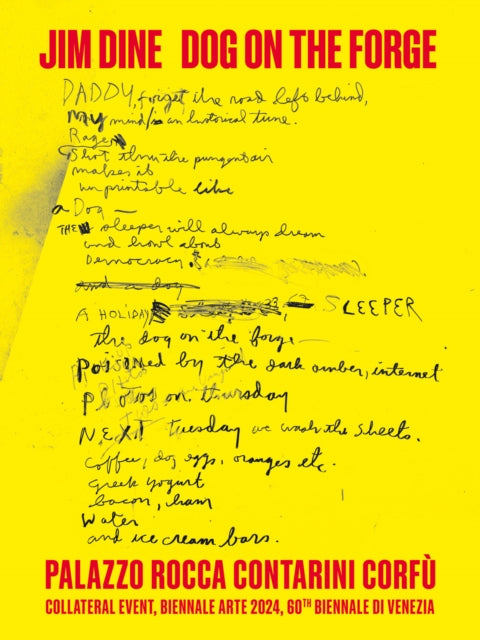 JIM DINE DOG ON THE FORGE
DADDY, forget the road left behind,
My mind/is an historical tune.
Rage
Shot thru the pungent air
makes it
unprintable like
a Dog —
THE sleeper will always dream
and howl about
Democracy.
and a dog
A HOLIDAY SLEEPER
the dog on the forge —
POISONED by the dark amber, internet
Photos on thursday
NEXT tuesday we wash the sheets.
coffee, dog eggs, oranges etc.
Greek yogurt
bacon, ham
Water
and ice cream bars.
PALAZZO ROCCA CONTARINI CORFÙ
COLLATERAL EVENT, BIENNALE ARTE 2024, 60TH BIENNALE DI VENEZIA